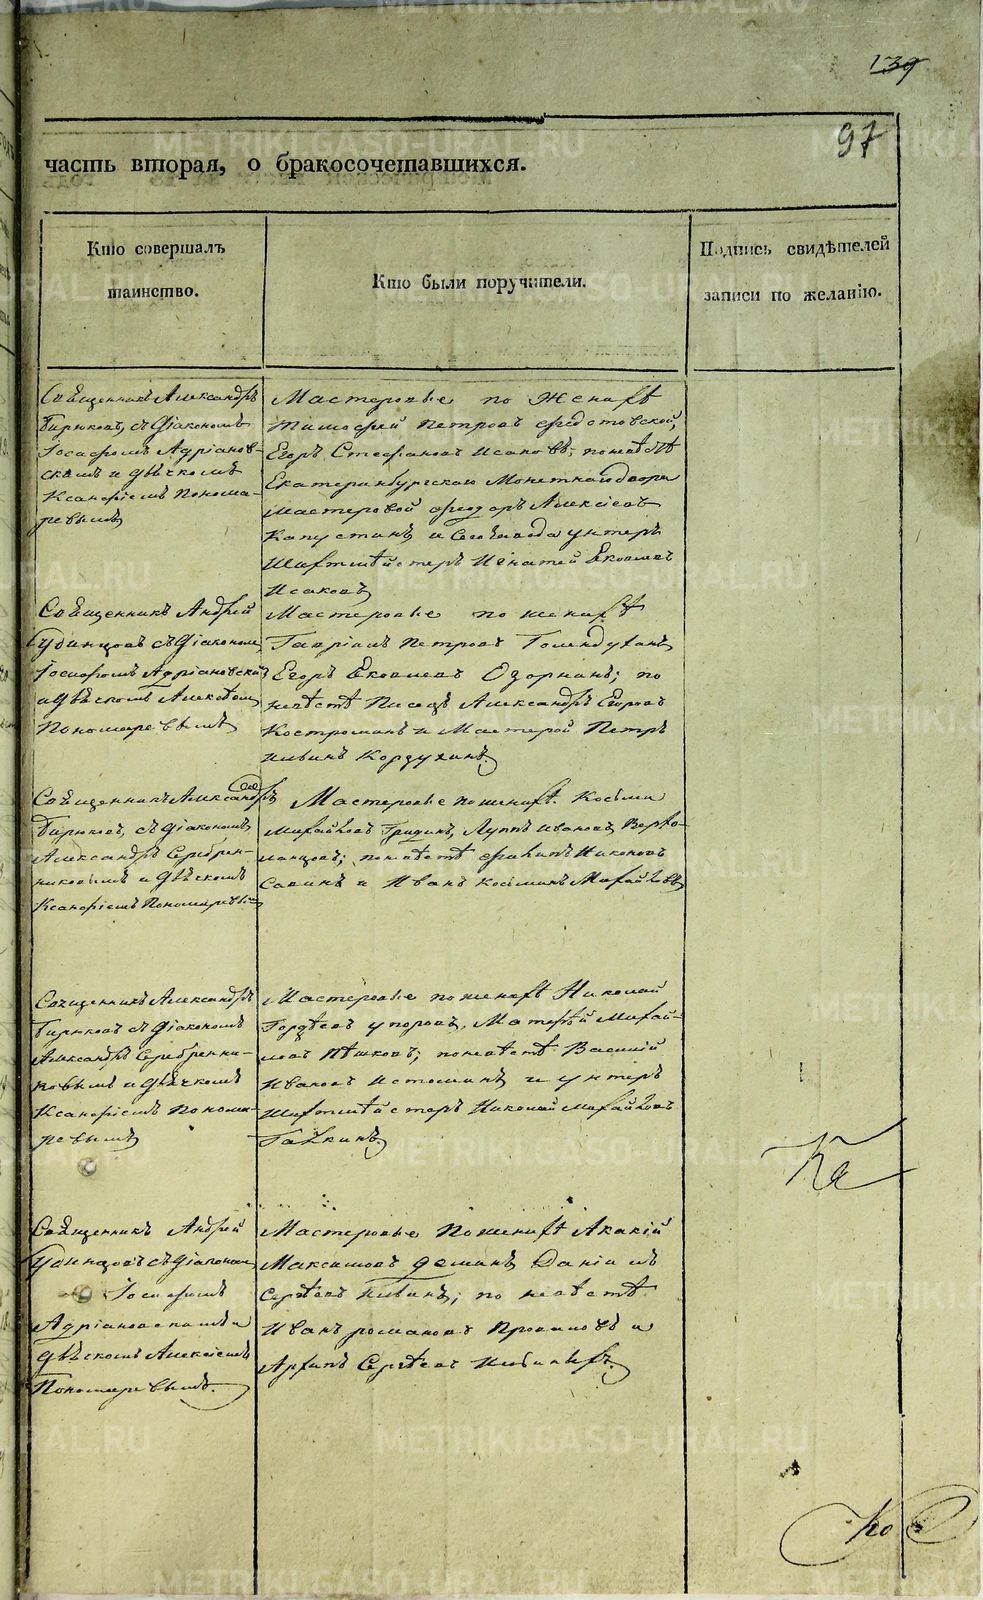 139
97
часть вторая, о бракосочетавшихся.
Кто совершалъ
таинство.
Кто были поручители.
Подпись свидѣтелей
записи по желанію.
Священникъ Александръ
Бирюковъ, съ Діакономъ
Іосафомъ Адріанов-
скимъ и Дьячкомъ
Ксанфіемъ Понома-
ревымъ
Мастеровые по женихѣ
Тимофей Петровъ
Егоръ Стефановъ Исаковъ; по невѣстѣ
Екатеринбургскаго Монетнаго двора
мастеровой Федоръ Алексѣевъ
Капустинъ и Сего завода унтеръ
Шихтмейстеръ Игнатей Яковлевъ
Исаковъ
Священникъ Андрей
Удинцовъ съ Діакономъ
Іосафомъ Адріановскимъ
и Дьячкомъ Алексѣемъ
Пономаревымъ
Мастеровые по женихѣ
Гавріилъ Петровъ Голендухинъ
Егоръ Яковлевъ Озорнинъ; по
невѣстѣ Писецъ Александръ Егоровъ
Костроминъ и Мастерой Петръ
Ильинъ Кордухинъ.
Священникъ Александръ
Бирюковъ, съ Діакономъ
Александръ Серебрен-
никовымъ и Дьячкомъ
Ксанфіемъ Пономаревымъ
Мастеровые по женихѣ Косьма
Михайловъ Гридинъ, Луппъ Ивановъ Верхо-
ланцовъ; по невѣстѣ Филипъ Никоновъ
Савинъ и Иванъ Косминъ Михайловъ
Священникъ Александръ
Бирюковъ съ Діакономъ
Александръ Серебренни-
ковымъ и Дьячкомъ
Ксанфіемъ Понома-
ревымъ
Мастеровые по женихѣ Николай
Гордѣевъ Упоровъ, Матвѣй Михай-
ловъ Пѣшковъ; по невѣстѣ Василій
Ивановъ Истоминъ и унтеръ
Шихтмейстеръ Николай Михайловъ
Галкинъ.
Ка
Священникъ Андрей
Удинцовъ съ Діакономъ
Іосафомъ
Адріановскимъ и
Дьячкомъ Алексѣемъ
Пономаревымъ.
Мастеровые по женихѣ Акакій
Максимовъ Деминъ Даніилъ
Сергѣевъ Ильинъ; по невѣстѣ
Иванъ Романовъ и
Архипъ Сергѣевъ
Ко
METRIKI.GASO-URAL.RU